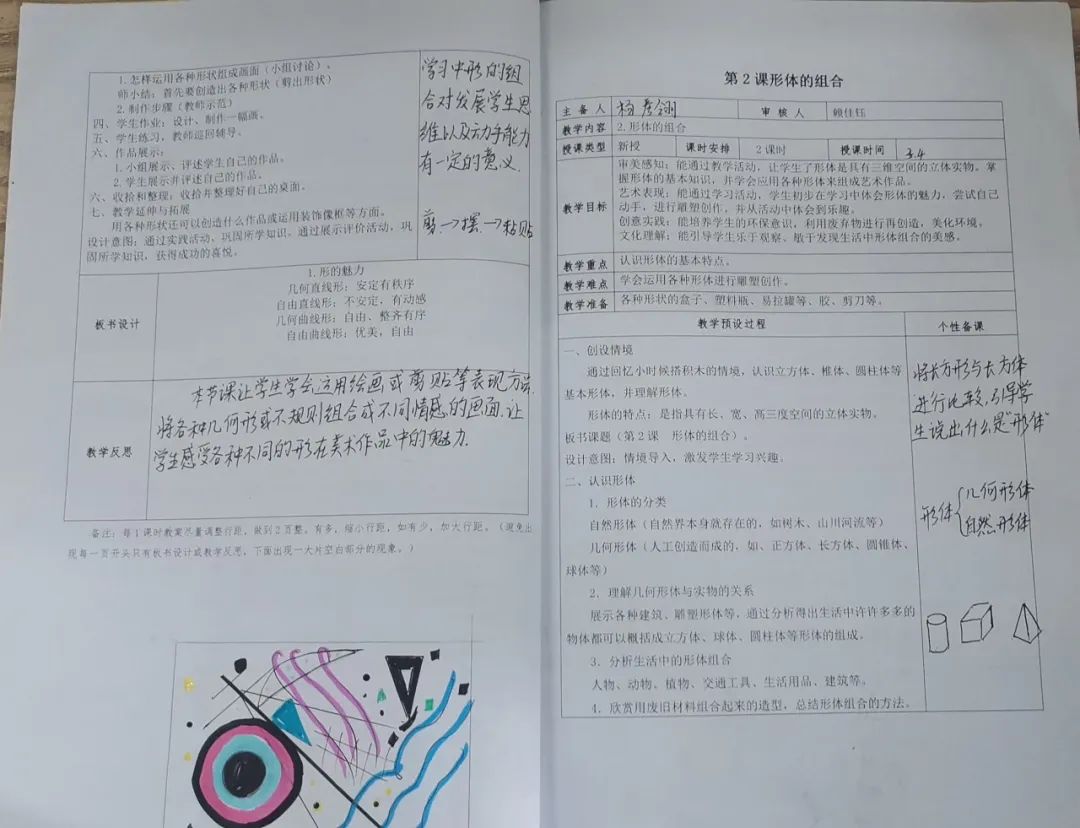 1.怎样运用各种形状组成画面（小组讨论）。
师小结：首先要创造出各种形状（剪出形状）
2.制作步骤（教师示范）
四、学生作业：设计、制作一幅画。
五、学生练习，教师巡回辅导。
六、作品展示：
1.小组展示、评述学生自己的作品。
2.学生展示并评述自己的作品。
六、收拾和整理：收拾并整理好自己的桌面。
七、教学延伸与拓展
用各种形状还可以创造什么作品或运用装饰像框等方面。
设计意图：通过实践活动、巩固所学知识。通过展示评价活动，巩
固所学知识，获得成功的喜悦。
学习中形的组
合对发展学生思
维以及动手能力
有一定的意义.
剪→摆→粘贴
板书设计
1.形的魅力
几何直线形：安定有秩序
自由直线形：不安定，有动感
几何曲线形：自由、整齐有序
自由曲线形：优美，自由
教学反思
本节课让学生学会运用绘画或剪贴等表现方法.
将各种几何形或不规则组合成不同情感的画面.让
学生感受各种不同的形在美术作品中的魅力.
备注：每1课时教案尽量调整行距，做到2页整。有多，缩小行距，如有少，加大行距。（避免出
现每一页开头只有板书设计或教学反思，下面出现一大片空白部分的现象。）
第2课形体的组合
主备人 杨彦翎 审核人 赖佳钰
教学内容 2.形体的组合
授课类型 新授 课时安排 2课时 授课时间 3.4
教学目标
审美感知：能通过教学活动，让学生了形体是具有三维空间的立体实物。掌
握形体的基本知识，并学会应用各种形体来组成艺术作品。
艺术表现：能通过学习活动，学生初步在学习中体会形体的魅力，尝试自己
动手，进行雕塑创作。并从活动中体会到乐趣。
创意实践：能培养学生的环保意识，利用废弃物进行再创造，美化环境。
文化理解：能引导学生乐于观察、敏于发现生活中形体组合的美感。
教学重点 认识形体的基本特点。
教学难点 学会运用各种形体进行雕塑创作。
教学准备 各种形状的盒子、塑料瓶、易拉罐等、胶、剪刀等。
教学预设过程 个性备课
一、创设情境
通过回忆小时候搭积木的情境，认识立方体、椎体、圆柱体等
基本形体，并理解形体。
形体的特点：是指具有长、宽、高三度空间的立体实物。
板书课题（第2课 形体的组合）。
设计意图：情境导入，激发学生学习兴趣。
二、认识形体
1．形体的分类
自然形体（自然界本身就存在的，如树木、山川河流等）
几何形体（人工创造而成的，如、正方体、长方体、圆锥体、
球体等）
2．理解几何形体与实物的关系
展示各种建筑、雕塑形体等，通过分析得出生活中许许多多的
物体都可以概括成立方体、球体、圆柱体等形体的组成。
3．分析生活中的形体组合
人物、动物、植物、交通工具、生活用品、建筑等。
4．欣赏用废旧材料组合起来的造型，总结形体组合的方法。
将长方形与长方体
进行比较,引导学
生说出什么是"形体"
形体{几何形体
自然形体